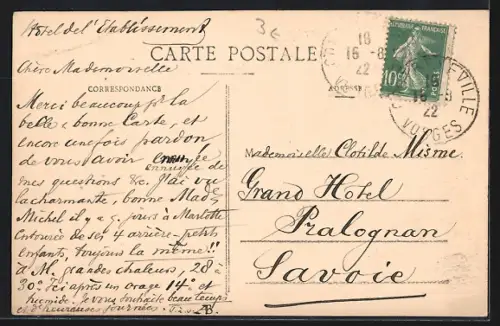 Hotel de l'Etablissement
3€
CARTE POSTALE
CORRESPONDANCE
ADRESSE
RÉPUBLIQUE FRANÇAISE
10c
POSTES
18
16 - 8
22
VILLE
22
VOSGES
Chère Mademoiselle
Merci beaucoup pr la
belle & bonne Carte, et
encore une fois pardon
de vous avoir ennuyée
ennuyée de
mes questions &c. J'ai vu
la charmante, bonne Made
Michel il y a 5 jours à Marlotte
Entourée de ses 4 arrière-petits
enfants, toujours la même!!
à M. grandes chaleurs, 28 à
30°. Ici après un orage 14° et
humide. Je vous souhaite beau temps
et d'heureuses journées.
Mademoiselle Clotilde Misme
Grand Hotel
Pralognan
Savoie